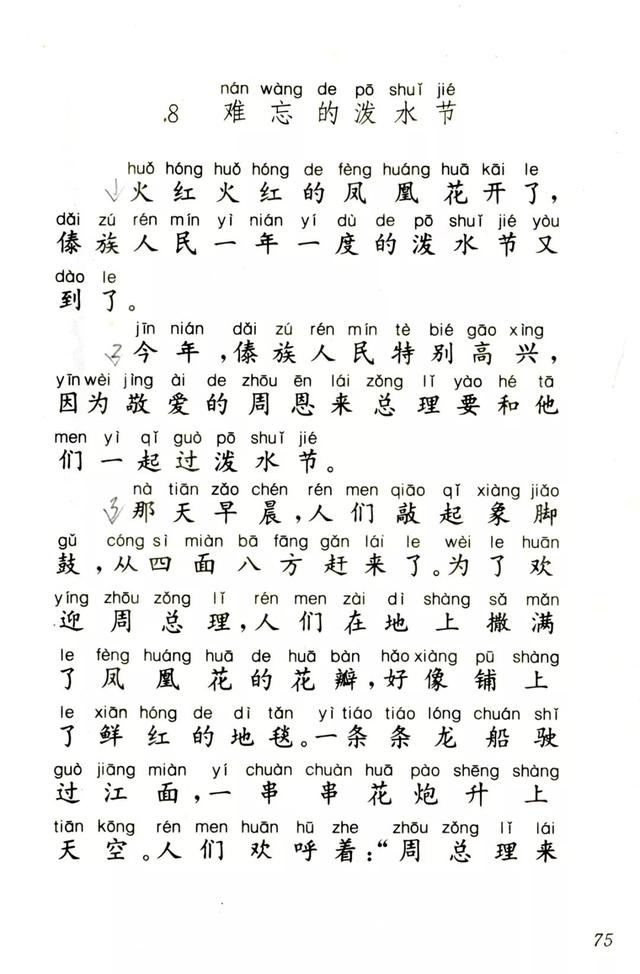 nán wàng de pō shuǐ jié
8 难忘的泼水节
huǒ hóng huǒ hóng de fèng huáng huā kāi le
1 火红火红的凤凰花开了，
dǎi zú rén mín yì nián yí dù de pō shuǐ jié yòu
傣族人民一年一度的泼水节又
dào le
到了。
jīn nián dǎi zú rén mín tè bié gāo xìng
2 今年，傣族人民特别高兴，
yīn wèi jìng ài de zhōu ēn lái zǒng lǐ yào hé tā
因为敬爱的周恩来总理要和他
men yì qǐ guò pō shuǐ jié
们一起过泼水节。
nà tiān zǎo chén rén men qiāo qǐ xiàng jiǎo
3 那天早晨，人们敲起象脚
gǔ cóng sì miàn bā fāng gǎn lái le wèi le huān
鼓，从四面八方赶来了。为了欢
yíng zhōu zǒng lǐ rén men zài dì shàng sǎ mǎn
迎周总理，人们在地上撒满
le fèng huáng huā de huā bàn hǎo xiàng pū shàng
了凤凰花的花瓣，好像铺上
le xiān hóng de dì tǎn yì tiáo tiáo lóng chuán shǐ
了鲜红的地毯。一条条龙船驶
guò jiāng miàn yí chuàn chuàn huā pào shēng shàng
过江面，一串串花炮升上
tiān kōng rén men huān hū zhe zhōu zǒng lǐ lái
天空。人们欢呼着：“周总理来
75